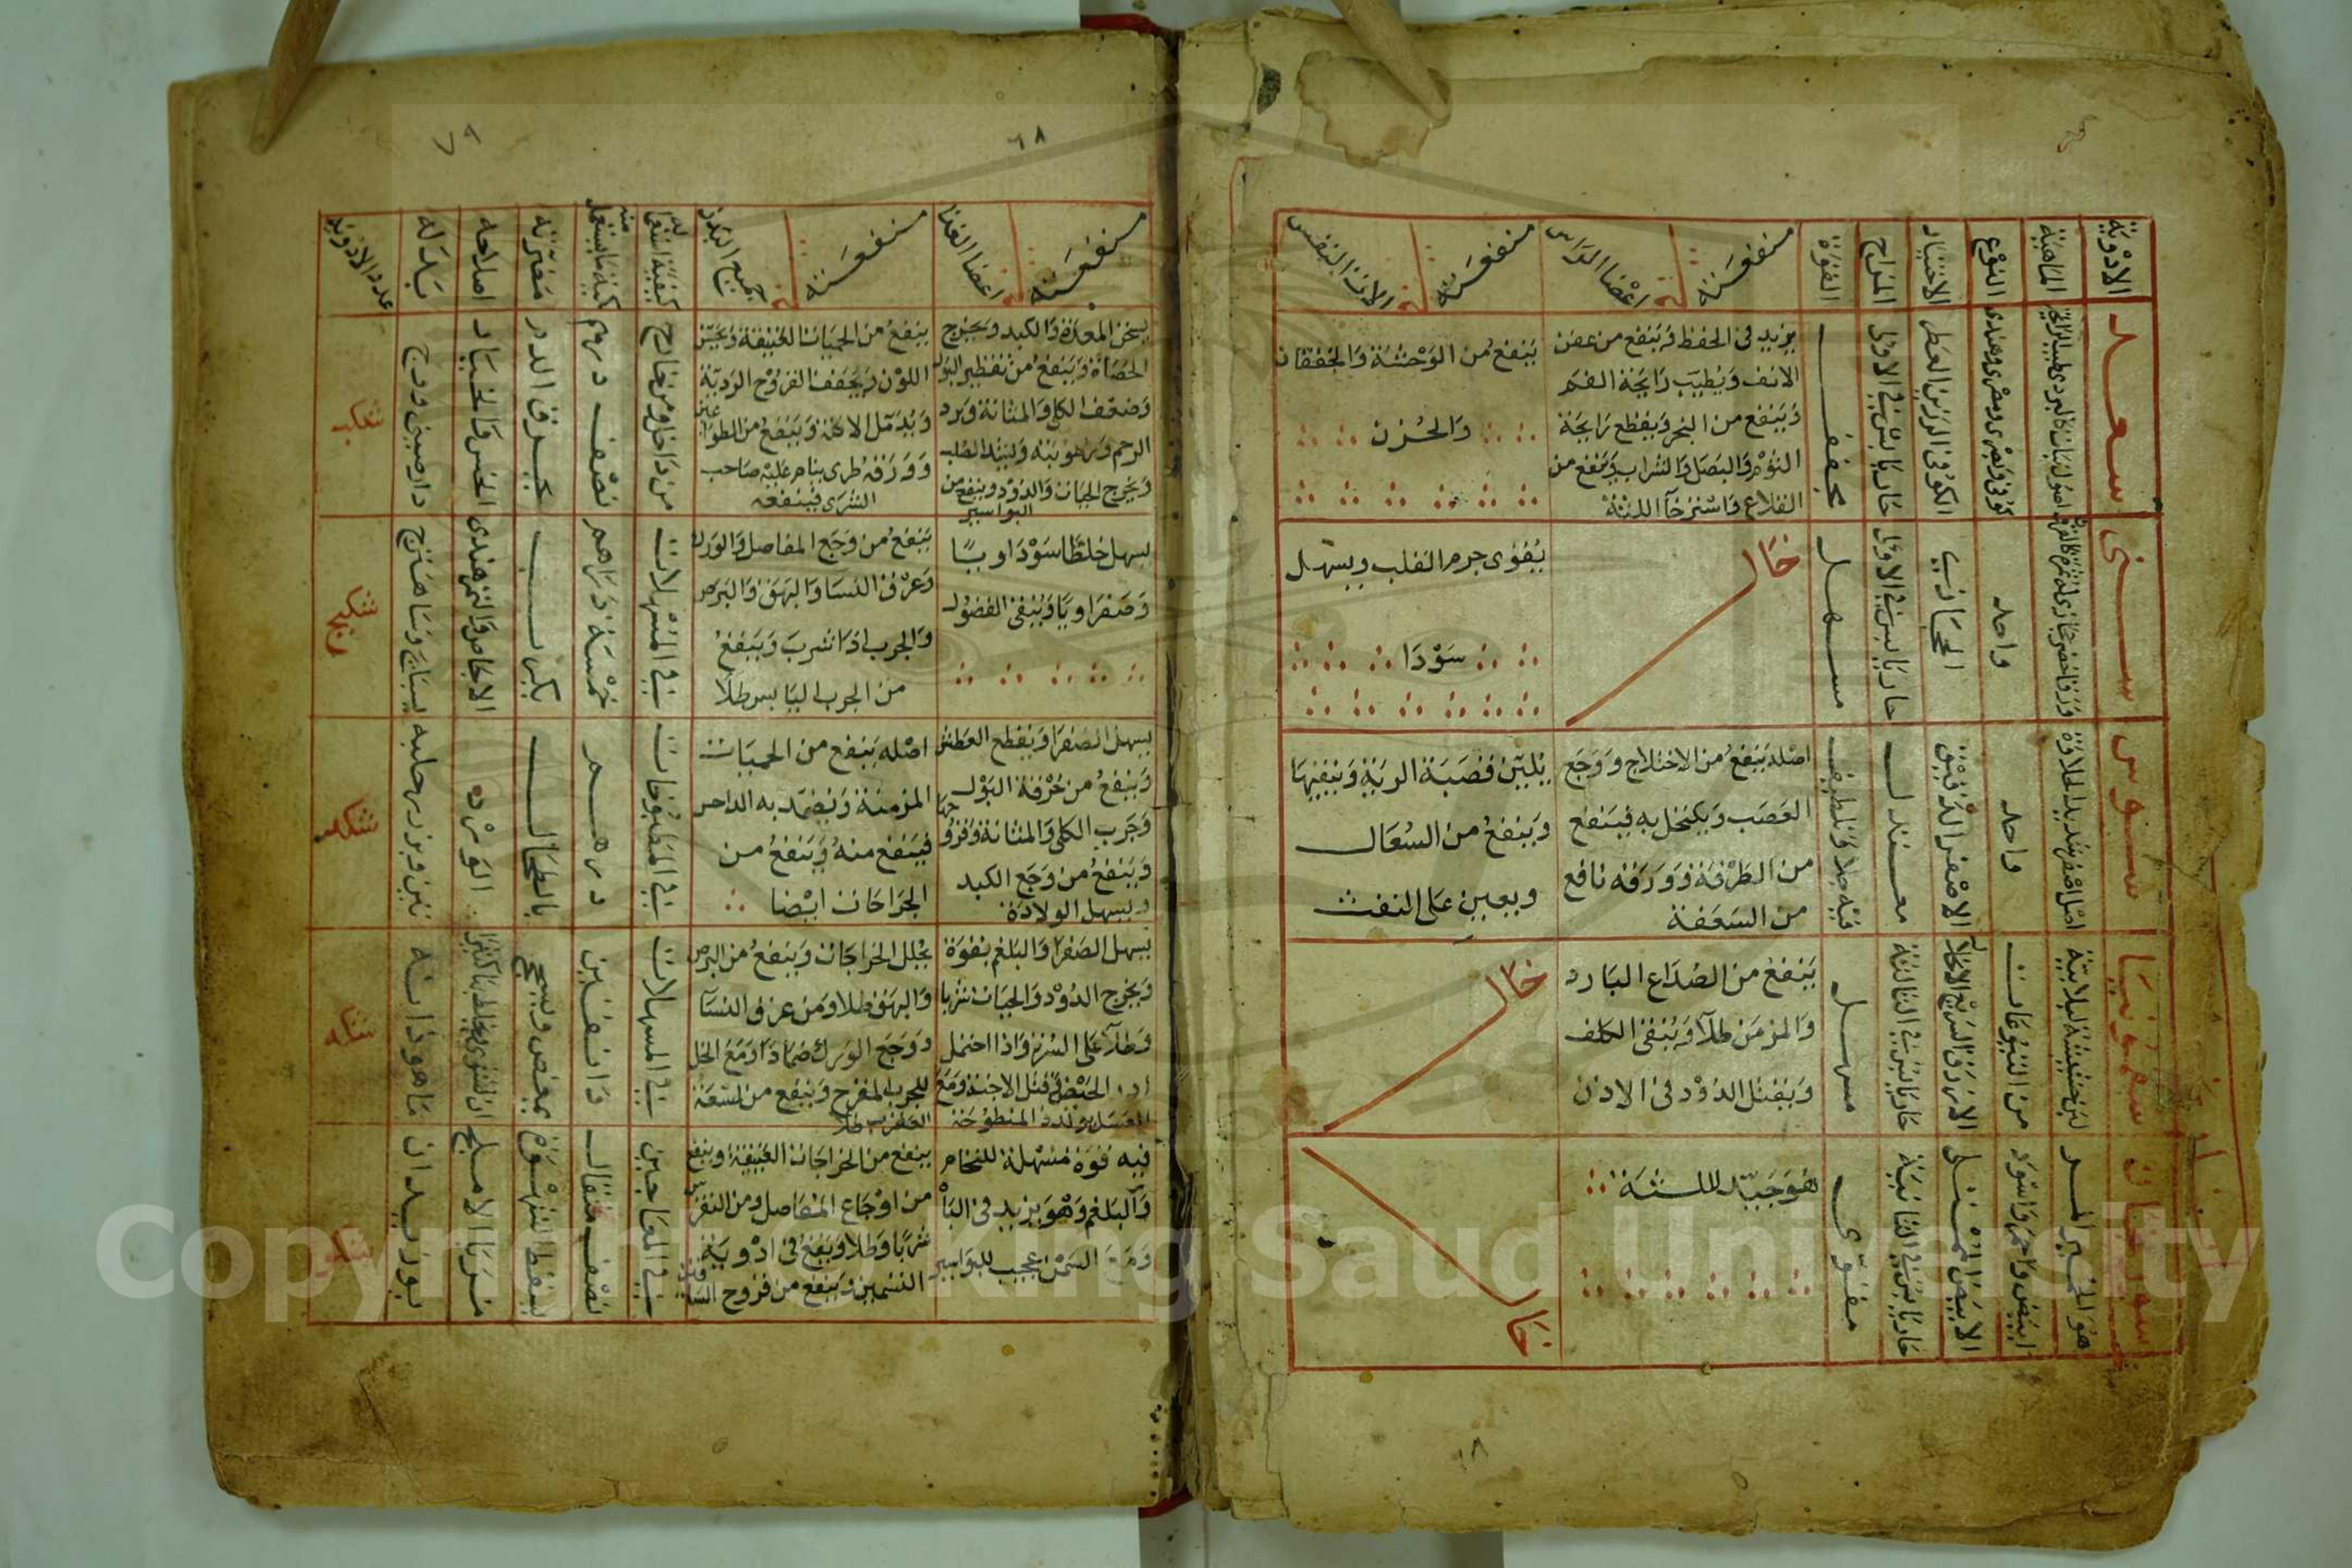 الادوية
الماهية
النوع
الاختيار
المزاج
القوة
منفعته في اعضا الراس
منفعته في الات النفس
سعد
كوفى وبصرى ومصرى وهندى
الكوفى الرزين العطر
حار يابس في الاولى
مجفف
يزيد فى الحفظ وينفع من عفن
الانف ويطيب رايحة الفم
وينفع من البخر ويقطع رايحة
الثوم والبصل والشراب وينفع من
القلاع واسترخآ اللثة
ينفع من الوحشة والخفقان
والحزن
سنى
واحد
الحجازي
حار يابس في الاولى
مسهل
خال
يقوى جرم القلب ويسهل
سودا
سوس
اصل اصفر شديد الحلاوة
واحد
الاصفر الدقيق
معتدل
فيه جلا وتلطيف
اصله ينفع من الاختلاج ووجع
العصب ويكتحل به فينفع
من الطرفة وورقه نافع
من السعفة
يليّن قصبة الرية وينقيها
وينفع من السعال
ويعين على النفث
سقمونيا
لبن حشيشة لبلابية
من التيوعات
الازرق السريع الانحلال
حار يابس في الثالثة
مسهل
ينفع من الصداع البارد
والمزمن طلآ وينقى الكلف
ويقتل الدود فى الاذن
خال
سورنجان
ابيض واحمر واسود
حار يابس في الثانية
مقوّى
هو جيّد للثة
خال
١٨
٦٨
٦٩
منفعته في اعضا الغذا
منفعته في جميع البدن
كيفية استعماله
كمية ما يستعمل منه
مضرته
اصلاحه
بدله
عدد الادوية
يسخن المعدة والكبد ويخرج
الحصاة وينفع من تقطير البول
وضعف الكلى والمثانة وبرد
الرحم ورطوبته ولشد الصلب
ويخرج الحيات والدود وينفع من
البواسير
ينفع من الحميات العتيقة ويحسّن
اللون ويجفف القروح الرديّة
ويدمّل الاكلة وينفع من الطواعين
وورقه طرى ينام عليه صاحب
الشرى فينفعه
من داخل ومن خارج
نصف درهم
يحرق الدم
دارصينى ووج
شكب
يسهل خلطا سوداويا
وصفراويا وينقى الفضول
ينفع من وجع المفاصل والورك
وعرق النسا والبهق والبرص
والجرب اذا شرب وينفع
من الجرب اليابس طلآ
في المسهلات
خمسة دراهم
يكرب
الاجاص والتمرهندى
بسبايج وشاهترج
شكج
يسهل الصفرا ويقطع العطش
وينفع من حرقة البول
وجرب الكلى والمثانة وقروحها
وينفع من وجع الكبد
ويسهل الولادة
اصله ينفع من الحميات
المزمنة ويضمّد به الداحس
فينفع منه وينفع من
الجراحات ايضا
في المطبوخات
درهم
بالطحال
الورد
تين وبزر حلبه
شكد
يسهل الصفرا والبلغم بقوة
ويخرج الدود والحيات شربا
وطلآ على السرة واذا احتمل
ادر الحيض وقتل الاجنة ومع
يحلل الخراجات وينفع من البرص
والبهق طلا ومن عرق النسآ
ووجع الورك ضمادا ومع الخل
للجرب المقرح وينفع من لسعة
العقرب طلا
في المسهلات
دانقين
يمغص ويسحج
ماهودانه
شكه
فيه قوة مسهلة للخام
والبلغم وهو يزيد فى الباه
ومع السمن عجيب للبواسير
ينفع من الخراجات العتيقة وينفع
من اوجاع المفاصل ومن النقرس
شربا وطلا ويقع فى ادوية
التسمين وينفع من قروح الساقين
في المعاجين
نصف مثقال
يسقط الشهوة
مربا الاملج
بوزيدان
شكو
Copyright © King Saud University